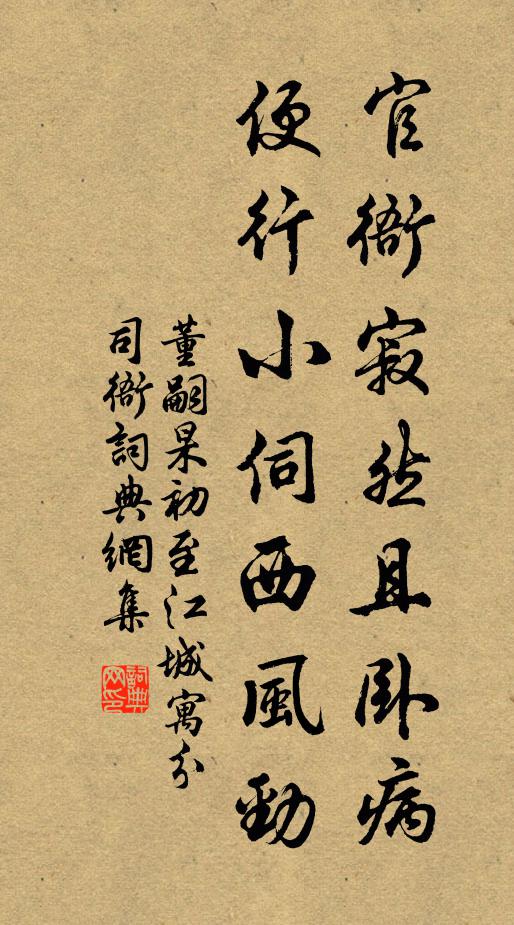 官衙寂然且卧病
便行小伺西風勁
董嗣杲初至江城寓分
司衙詞典網集
詞典
网印